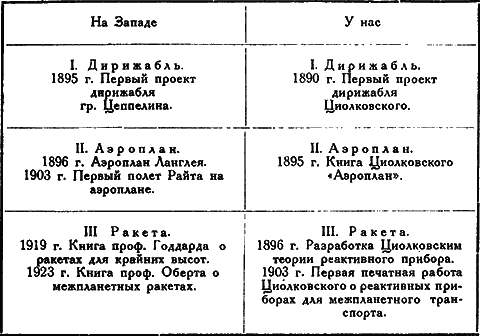 На Западе
У нас
I. Дирижабль.
1895 г. Первый проект
дирижабля
гр. Цеппелина.
I. Дирижабль.
1890 г. Первый проект
дирижабля
Циолковского.
II. Аэроплан.
1896 г. Аэроплан Ланглея.
1903 г. Первый полет Райта на
аэроплане.
II. Аэроплан.
1895 г. Книга Циолковского
«Аэроплан».
III Ракета.
1919 г. Книга проф. Годдарда о
ракетах для крайних высот.
1923 г. Книга проф. Оберта о
межпланетных ракетах.
III. Ракета.
1896 г. Разработка Циолковским
теории реактивного прибора.
1903 г. Первая печатная работа
Циолковского о реактивных при-
борах для межпланетного тран-
спорта.